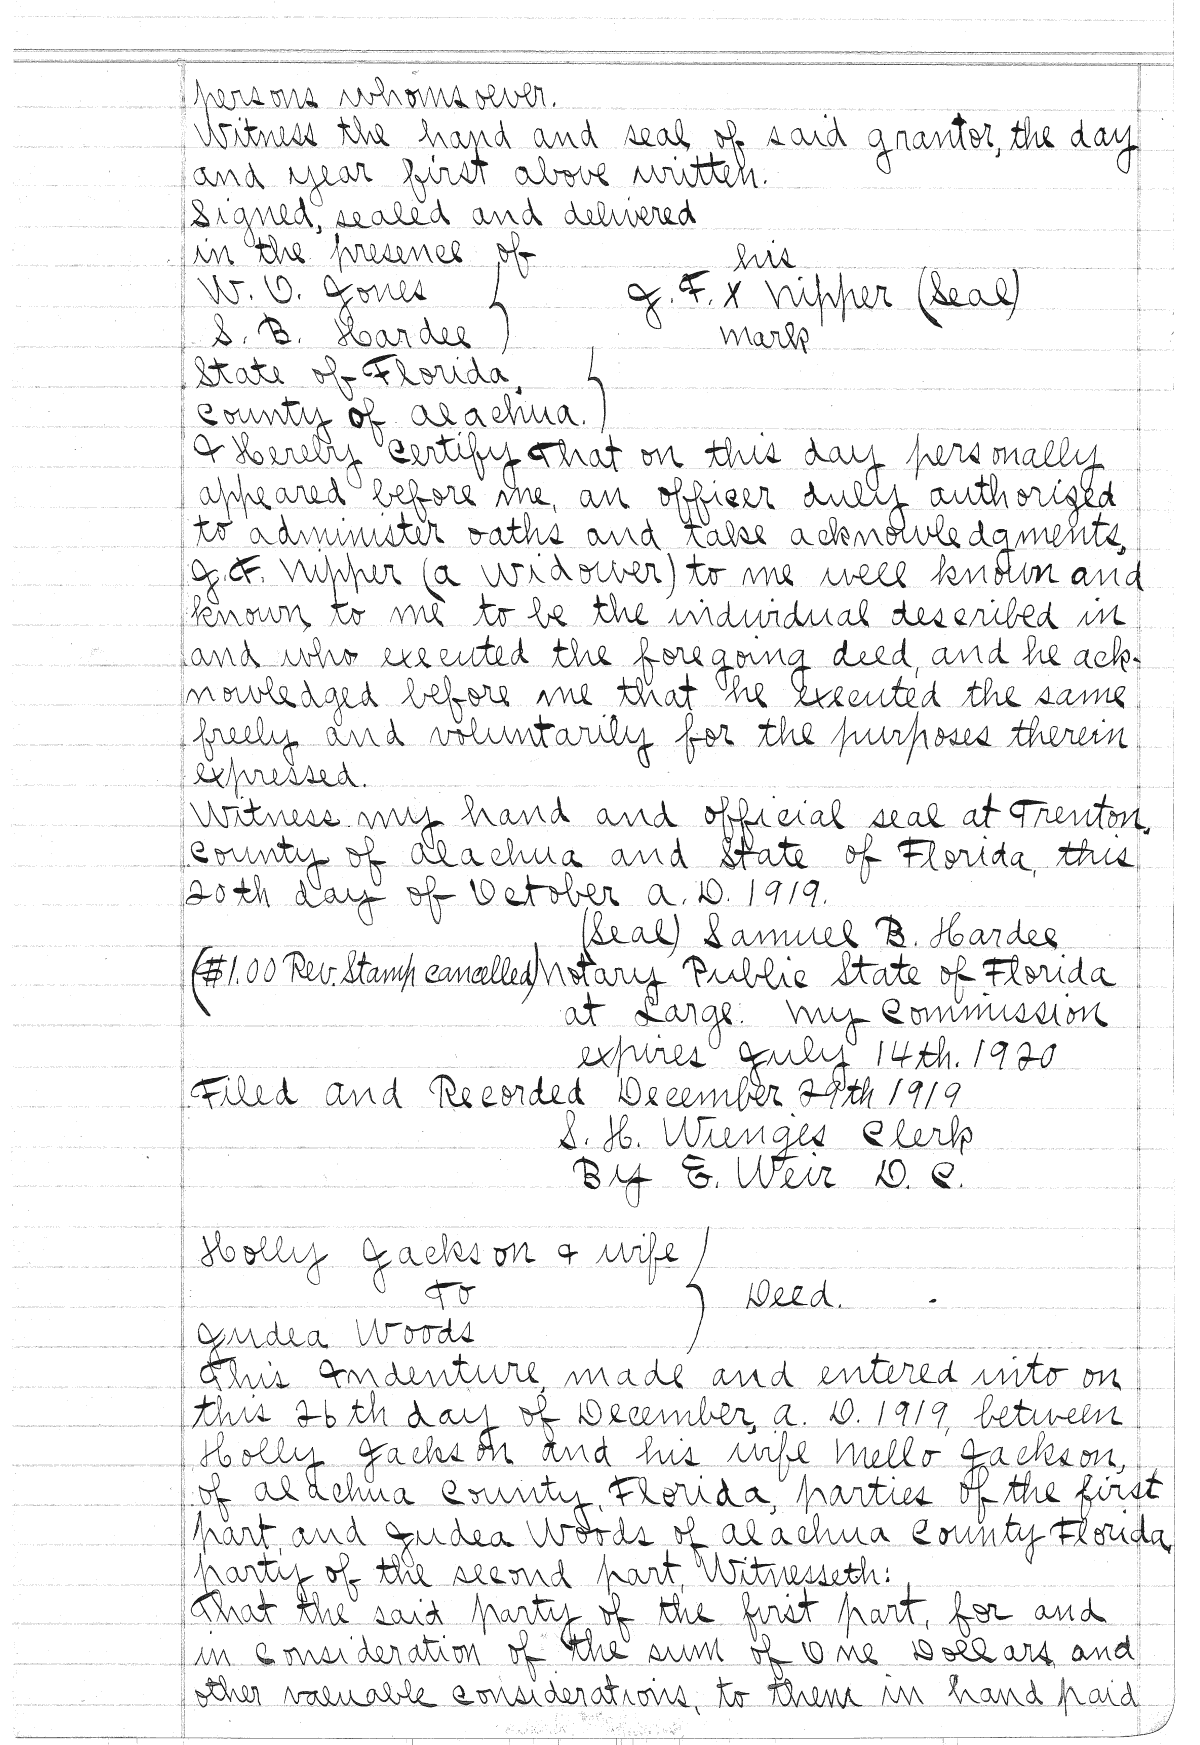 persons whomsoever.
Witness the hand and seal of said grantor, the day
and year first above written.
Signed, sealed and delivered
in the presence of his
W. O. Jones J. F. X Nipper (Seal)
S. B. Hardee mark
State of Florida,
County of Alachua.
I Hereby Certify That on this day personally
appeared before me, an officer duly authorized
to administer oaths and take acknowledgments,
J. F. Nipper (a widower) to me well known and
known to me to be the individual described in
and who executed the foregoing deed, and he ack-
nowledged before me that he executed the same
freely and voluntarily for the purposes therein
expressed.
Witness my hand and official seal at Trenton,
County of Alachua and State of Florida, this
20th day of October A. D. 1919.
(Seal) Samuel B. Hardee
($1.00 Rev. Stamp cancelled) Notary Public State of Florida
at Large. My Commission
expires July 14th. 1920
Filed and Recorded December 29th 1919
S. H. Wienges Clerk
By E. Weir D. C.
Holly Jackson & wife
To Deed.
Judea Woods
This Indenture, made and entered into on
this 26th day of December, A. D. 1919, between
Holly Jackson and his wife Mello Jackson,
of Alachua County, Florida, parties of the first
part, and Judea Woods of Alachua County Florida,
party of the second part, Witnesseth:
That the said party of the first part, for and
in consideration of the sum of One Dollars, and
other valuable considerations, to them in hand paid